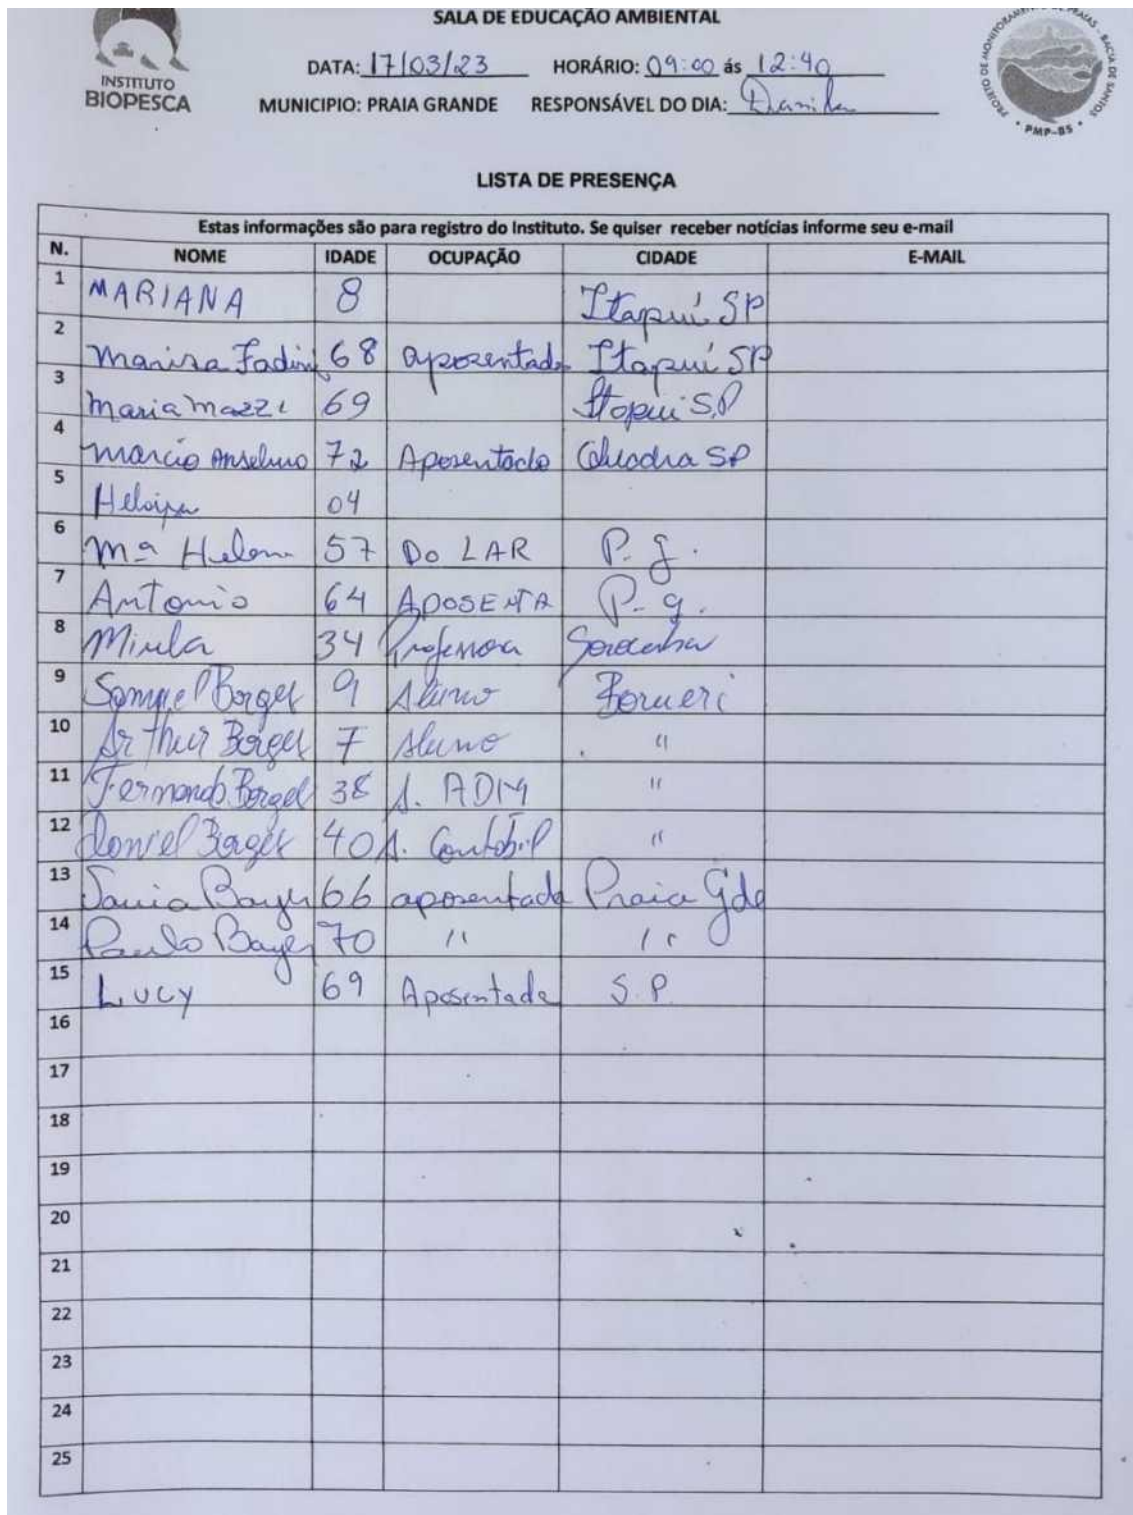 SALA DE EDUCAÇÃO AMBIENTAL
INSTITUTO
BIOPESCA
DATA: 17/03/23 HORÁRIO: 09:00 ás 12:40
MUNICIPIO: PRAIA GRANDE RESPONSÁVEL DO DIA:
PROJETO DE MONITORAMENTO DE PRAIAS - BACIA DE SANTOS
• PMP-BS •
LISTA DE PRESENÇA
Estas informações são para registro do Instituto. Se quiser receber notícias informe seu e-mail
N. NOME IDADE OCUPAÇÃO CIDADE E-MAIL
1 MARIANA 8 Itapuí SP
2 Marisa Fadini 68 aposentada Itapuí SP
3 Maria Mazzi 69 Itapui S.P
4 Marcio Anselmo 72 Aposentado Quadra SP
5 Heloisa 04
6 Mª Helena 57 Do LAR P. g.
7 Antonio 64 APOSENTA P. g.
8 34 Professora Sorocaba
9 Samuel Borges 9 Aluno Barueri
10 Arthur Borges 7 Aluno "
11 Fernando Borges 38 A. ADM "
12 Daniel Borges 40 A. Contábil "
13 66 aposentada Praia Gde
14 Paulo 70 " "
15 Lucy 69 Aposentada S. P.
16
17
18
19
20
21
22
23
24
25